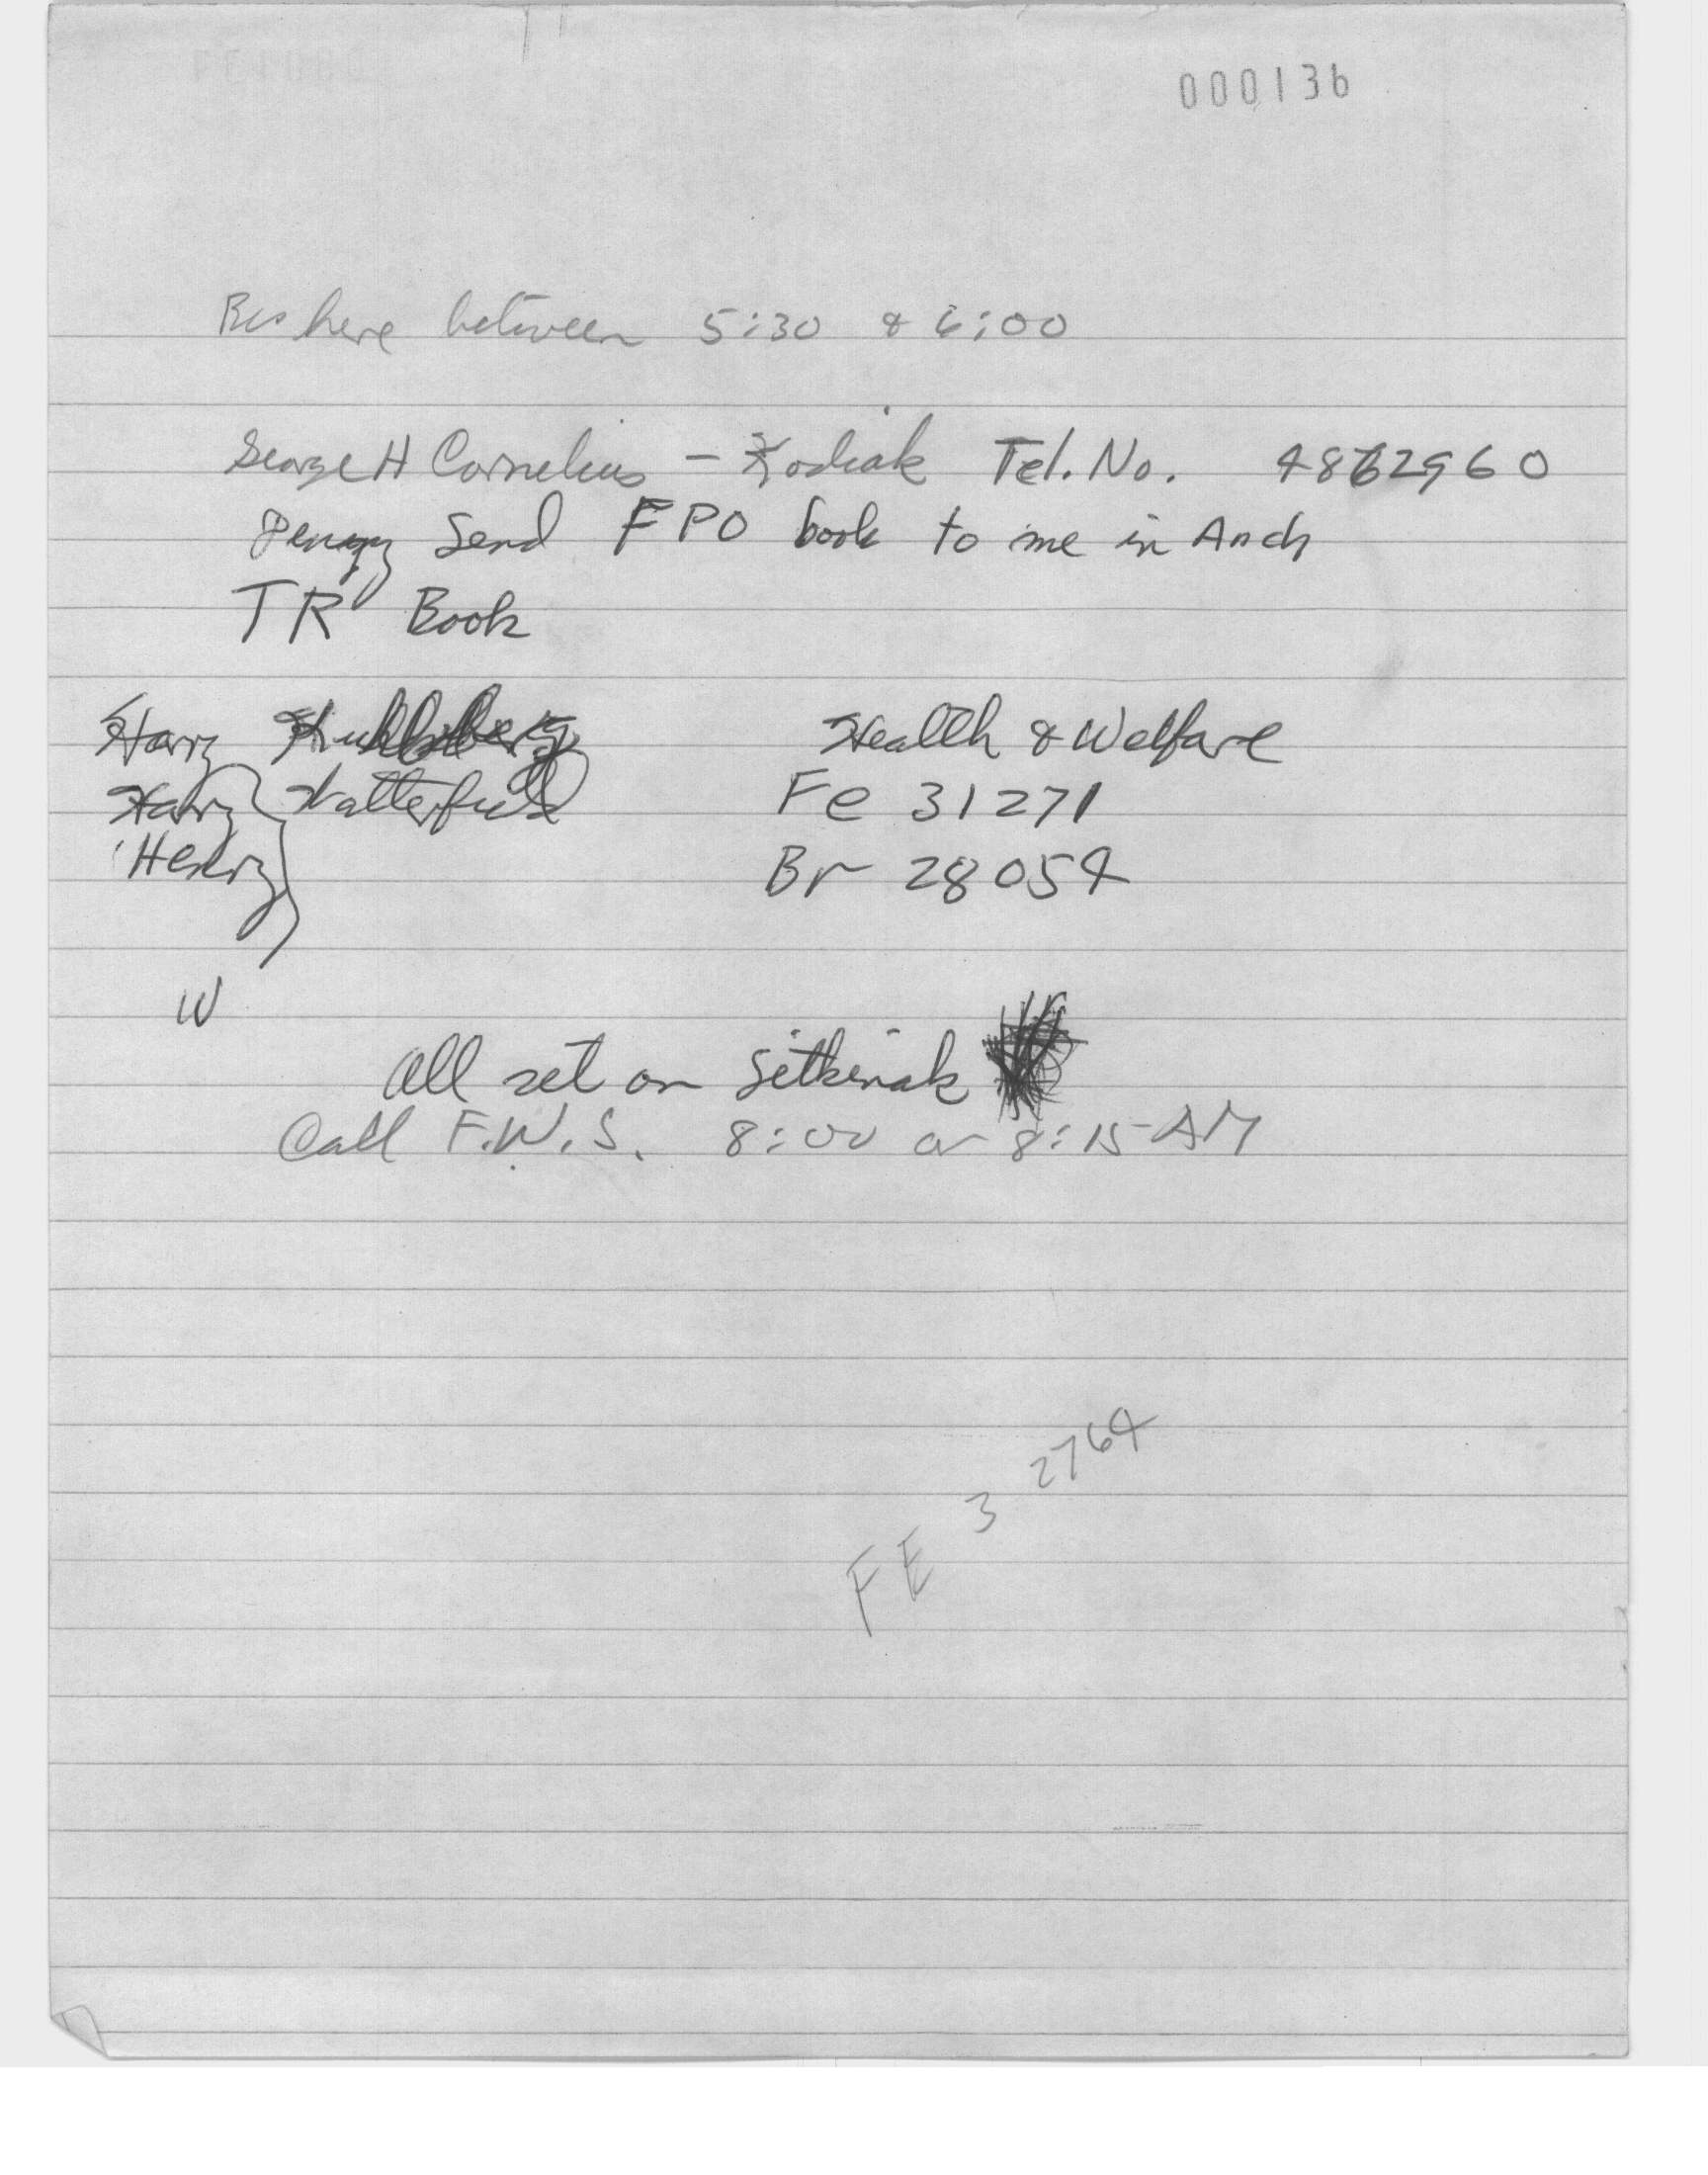 000136
here between 5:30 & 6:00
George H Cornelius - Kodiak Tel. No. 4862960
Send FPO book to me in Anch
TR Book
Harry Health & Welfare
Harry Hatterfield Fe 31271
Henry Br 28054
W
All set on Sitkinak
Call F.W.S. 8:00 or 8:15 AM
FE 3 2764